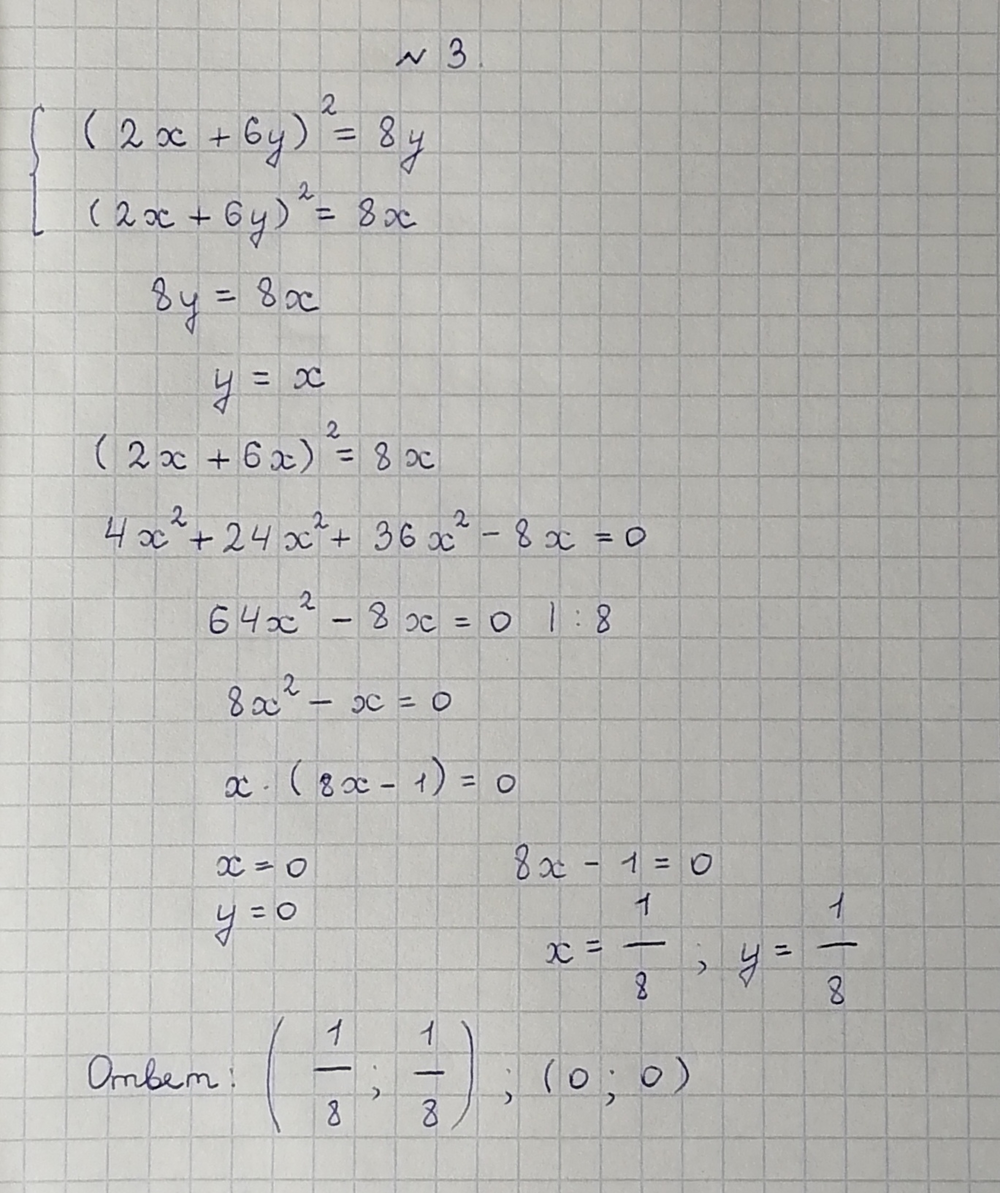 № 3.
(2x + 6y)² = 8y
(2x + 6y)² = 8x
8y = 8x
y = x
(2x + 6x)² = 8x
4x² + 24x² + 36x² - 8x = 0
64x² - 8x = 0 | : 8
8x² - x = 0
x · (8x - 1) = 0
x = 0 8x - 1 = 0
y = 0 x = 1/8 ; y = 1/8
Ответ: (1/8 ; 1/8) ; (0 ; 0)